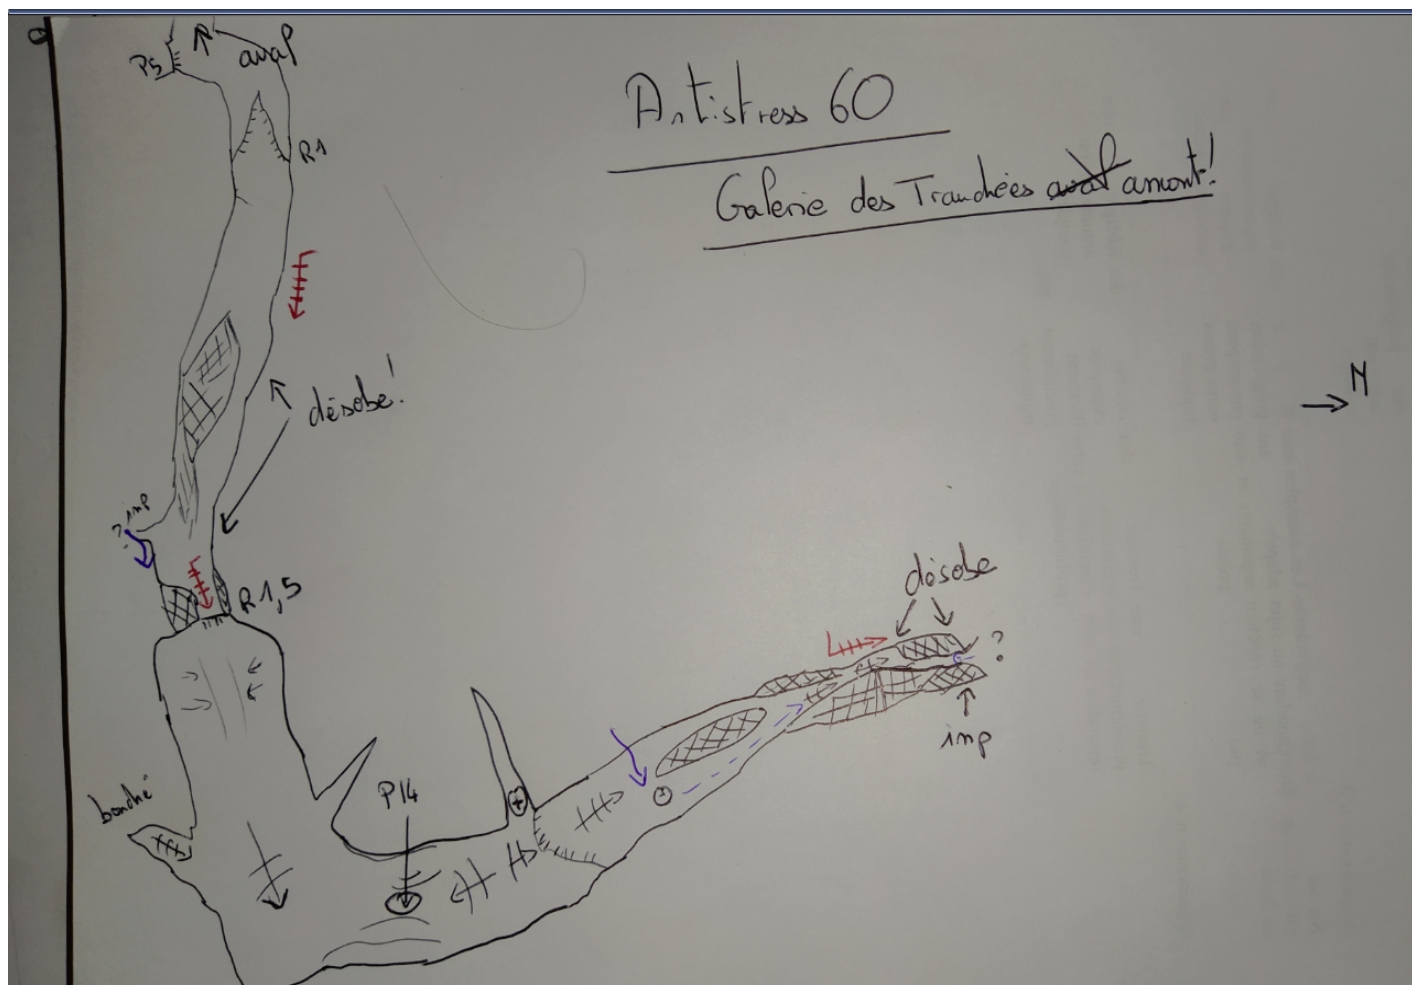 P5
aval
Antistress 60
R1
Galerie des Tranchées aval amont!
N
désobe!
? inp
R1,5
désobe
?
inp
bouché
P14